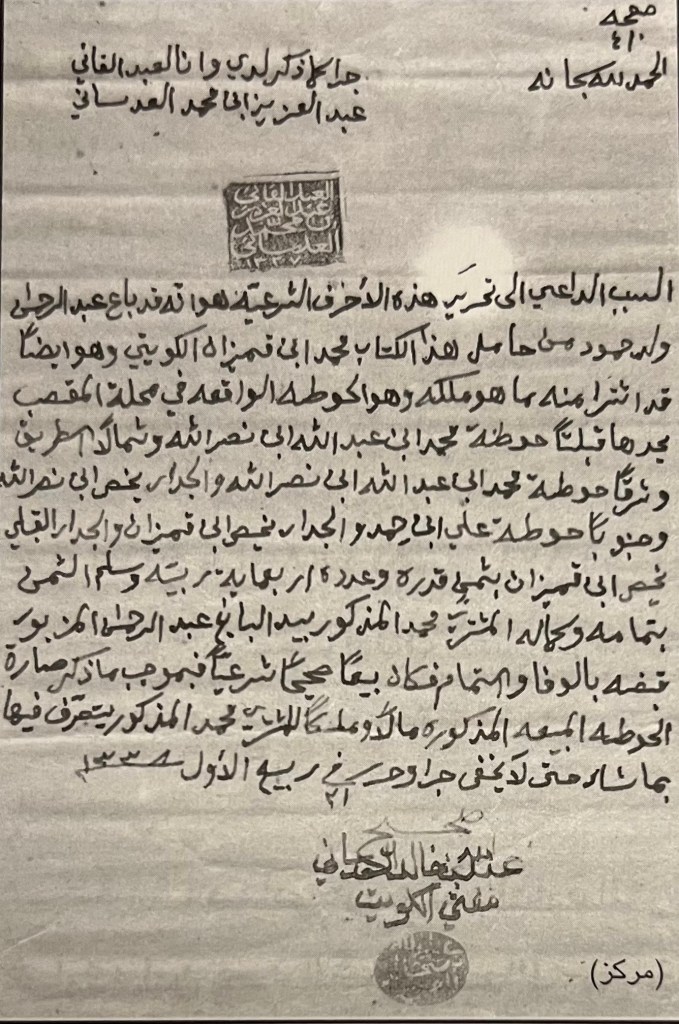 صفحه
٤١٠
الحمد لله سبحانه
جرا كما ذكر لدي وانا العبد الفاني
عبد العزيز ابن محمد العدساني
العبد الفاني
عبد العزيز
بن محمد
العدساني
السبب الداعي الى تحرير هذه الأحرف الشرعيّه هو انه قد باع عبد الرحمن
ولد حمود من حامل هذا الكتاب محمد ابن قميزان الكويتي وهو ايضاً
قد اشترا منه ما هو ملكه وهو الحوطه الواقعه في محلة المقصب
يحدها قبلتاً حوطة محمد ابن عبد الله ابن نصر الله وشمالاً الطريق
وشرقاً حوطة محمد ابن عبد الله ابن نصر الله والجدار يخص ابن نصر الله
وجنوباً حوطة علي ابن حمد والجدار يخص ابن قميزان والجدار القبلي
يخص ابن قميزان بثمن قدره وعدده اربعماية ربيّه وسلم الثمن
بتمامه وكماله المشتري محمد المذكور بيد البائع عبد الرحمن المزبور
قبضه بالوفا والتمام فكان بيعاً صحيحاً شرعياً فبموجب ما ذكر صارة
الحوطه المبيعه المذكوره مالاً وملكاً للمشتري محمد المذكور يتصرف فيها
بما شاء حتى لا يخفى جرا وحرر في ٢١ ربيع الأول سـ١٣٣٨ـنه
صحيح
عبد الله بن خالد العدساني
مفتي الكويت
(مركز)